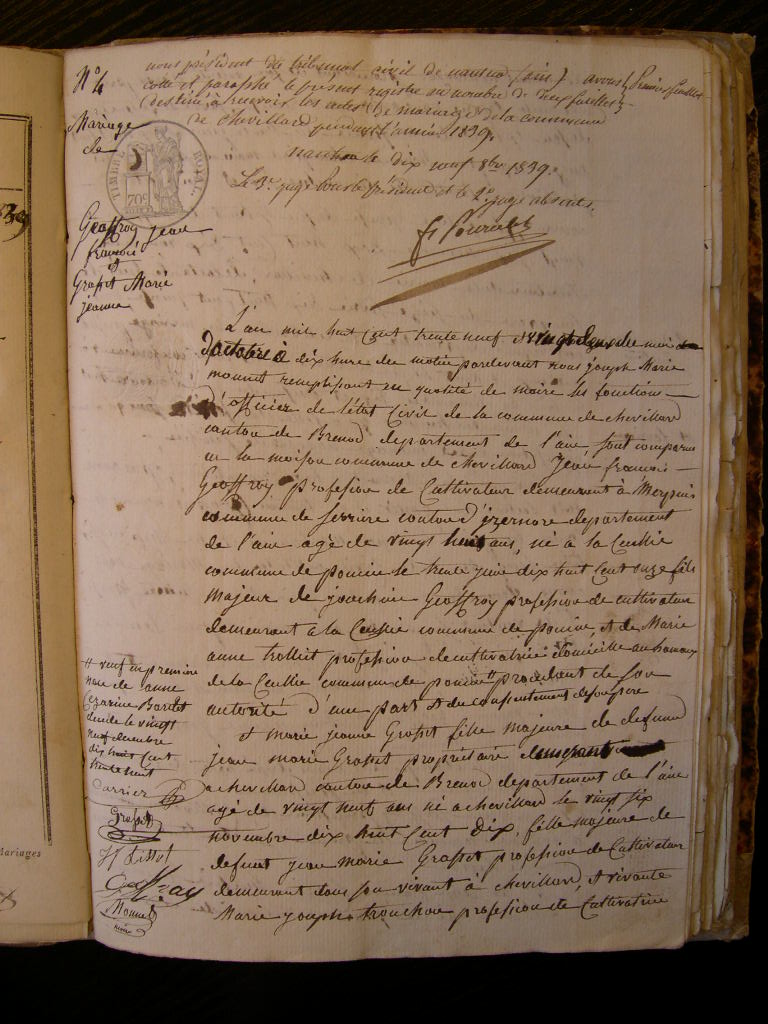 nous président du tribunal civil de nantua (ain) avons
coté et paraphé le présent registre au nombre de deux feuillets
destiné à recevoir les actes de mariage de la commune
de Chevillard pendant l'année 1839.
nantua le dix neuf 8bre 1839.
Le 3e juge pour le président et le 2e juge absents.
premier feuillet
N° 4
Mariage
de
TIMBRE ROYAL
70c
Geoffroy jean
francois
et
Grosset Marie
jeanne
39
L'an mil huit Cent trente neuf et vingt deux du mois
d'octobre à dix heure du matin pardevant nous joseph Marie
monnet remplissant en qualité de maire les fonctions
d'officier de l'état Civil de la commune de chevillard
canton de Brenod departement de l'ain sont comparus
en la maison commune de chevillard Jean francois
Geoffroy profession de Cultivateur demeurant à Meyssiat
commune de serriere canton d'izernore departement
de l'ain agé de vingt huit ans, né à la Cueille
commune de poncin le trente juin dix huit Cent onze fils
majeur de joachim Geoffroy profession de cultivateur
demeurant a la Cueille commune de poncin, et de Marie
anne trolliet profession de cultivatrice domicilié au hameau
de la Cueille commune de poncin # procedant de son
autorité d'une part et du consentement de son pere
et marie jeanne Grosset fille majeure de defunt
jean marie Grosset propriétaire demeurant
a chevillard canton de Brenod departement de l'ain
agé de vingt neuf ans né a chevillard le vingt six
novembre dix huit Cent dix, fille majeure de
defunt jean marie Grosset profession de Cultivateur
demeurant dans son vivant à chevillard, et vivante
Marie joseph trouchon profession de Cultivatrice
# veuf en premiere
noce de anne
Cezarine Bardet
décédé le vingt
neuf decembre
dix huit Cent
trente huit
Carrier
Grosset
Geoffray
Monnet
maire
Mariages